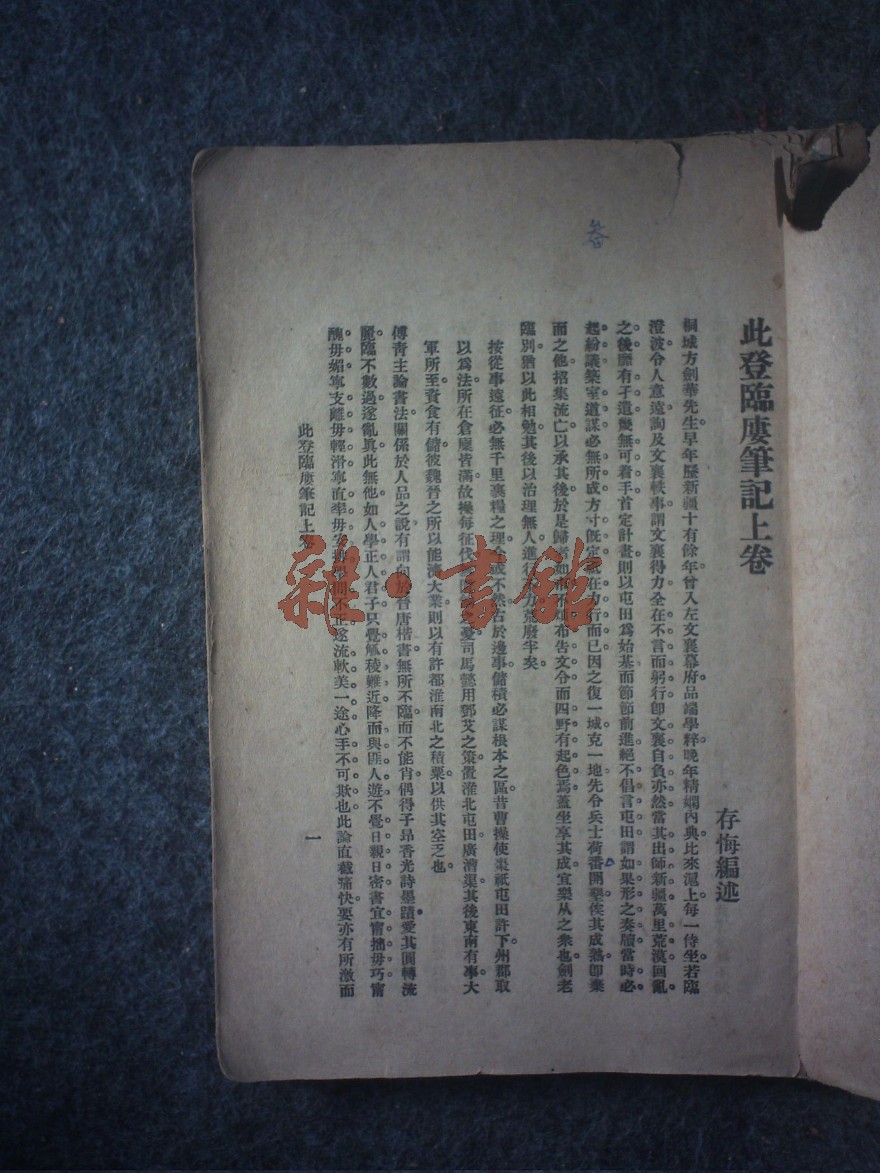 此登臨廔筆記上卷
存悔編述
桐城方劍華先生。早年歷新疆十有餘年。曾入左文襄幕府。品端學粹。晚年精嫻內典。比來滬上。每一侍坐。若臨
澄波。令人意遠。詢及文襄軼事。謂文襄得力。全在不言而躬行。卽文襄自負亦然。當其出師新疆。萬里荒漠。回亂
之後。靡有孑遺。幾無可着手。首定計畫。則以屯田爲始基。而節節前進。絕不倡言屯田。謂如果形之奏牘。當時必
起紛議。築室道謀。必無所成。方寸旣定。祇在力行而已。因之復一城克一地。先令兵士荷番開墾。俟其成熟。卽棄
而之他。招集流亡。以承其後。於是歸者如市。不煩布告文令。而四野有起色焉。蓋坐享其成。宜樂从之衆也。劍老
臨別。猶以此相勉。其後以治理無人。進行 力。荒廢半矣。
按從事遠征。必無千里裹糧之理。今或不然。古於邊事儲積。必謀根本之區。昔曹操使棗祇屯田許下。州郡取
以爲法。所在倉廩皆滿。故操每征伐 憂。司馬懿用鄧艾之策。置淮北屯田。廣漕渠。其後東南有事。大
軍所至。資食有儲。彼魏晉之所以能濟大業。則以有許都淮南北之積粟。以供其空乏也。
傅靑主論書法關係於人品之說。有謂向於晉唐楷書。無所不臨。而不能肖。偶得子昂香光詩墨蹟。愛其圓轉流
麗。臨不數過。遂亂眞。此無他。如人學正人君子。只覺觚稜難近。降而與匪人遊。不覺日親日密。書宜甯拙毋巧。甯
醜毋媚。寧支離毋輕滑。寧直率毋安排。 間不正。遂流軟美一途。心手不可欺也。此論直截痛快。要亦有所激而
此登臨廔筆記上卷
一
雜·書館